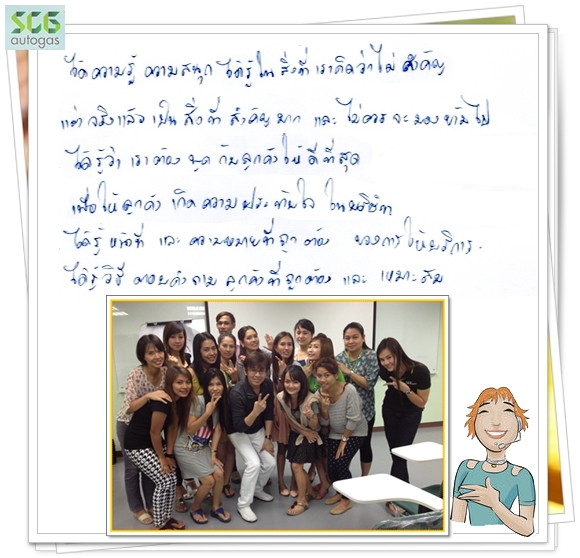 SCG
autogas
ได้ความรู้ ความสนุก ได้รู้ใน สิ่งที่ เราคิดว่าไม่ สำคัญ
แต่จริงแล้ว เป็น สิ่งที่ สำคัญ มาก และ ไม่ควร จะ มองข้ามไป
ได้รู้ว่า เราต้อง พูด กับลูกค้าให้ ดีที่สุด
เพื่อให้ลูกค้า เกิด ความประทับใจ ในบริษัท
ได้รู้ หน้าที่ และ ความหมายที่ถูกต้อง ของการให้บริการ.
ได้รู้วิธี ตอบคำถาม ลูกค้าที่ถูกต้อง และ เหมาะสม